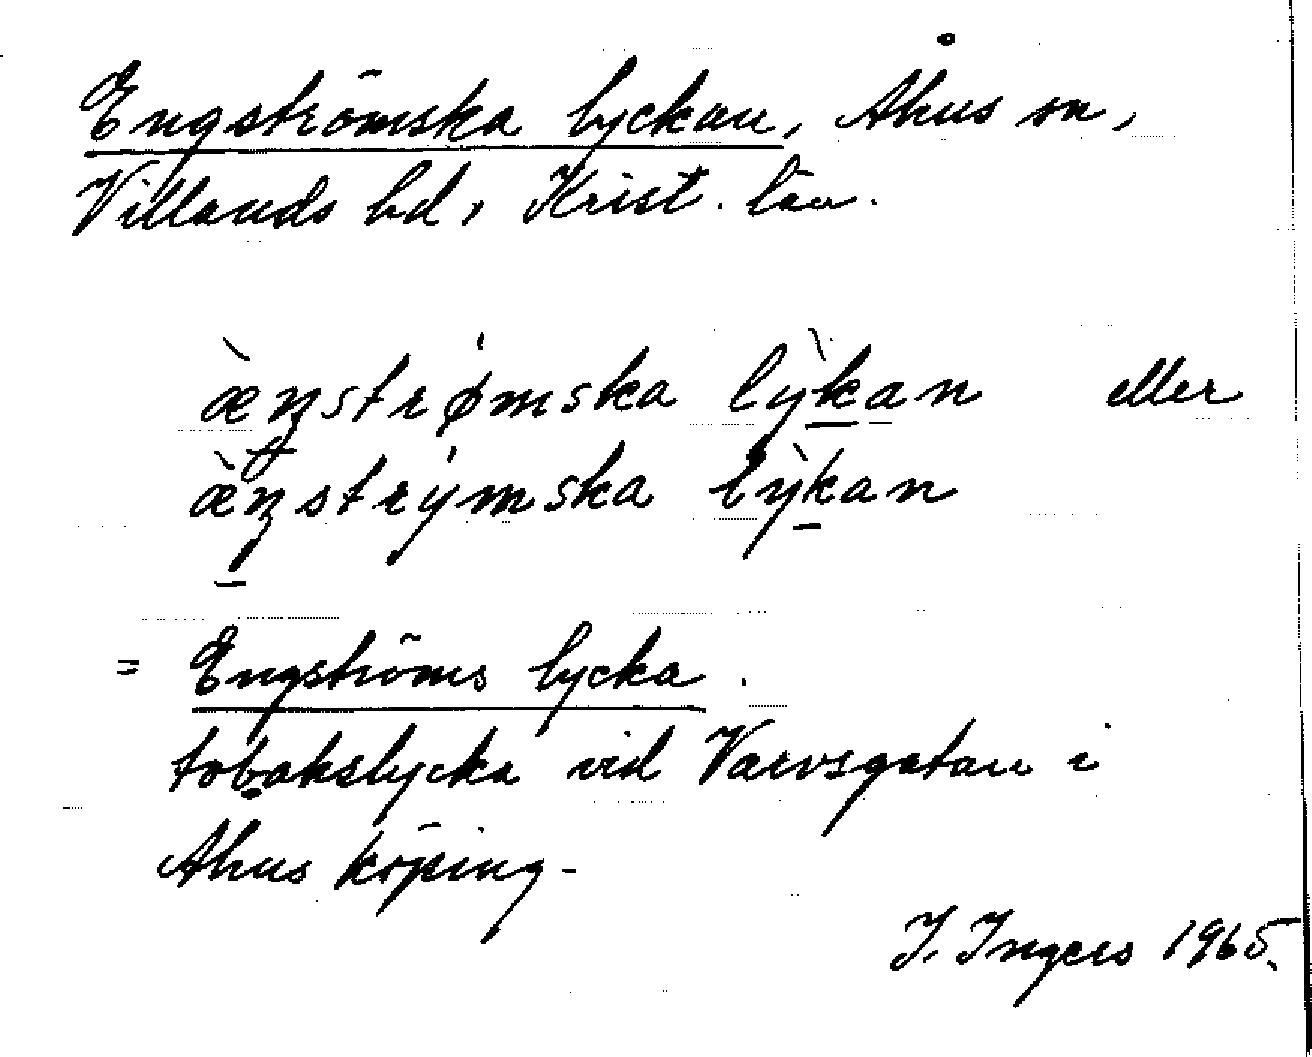 Engströmska lyckan, Åhus sn,
Villands hd, Krist. län.
æ̀ŋstrømska lỳkan eller
æ̀ŋstrymska lỳkan
= Engströms lycka.
tobakslycka vid Varvsgatan i
Åhus köping.
I. Ingers 1965.